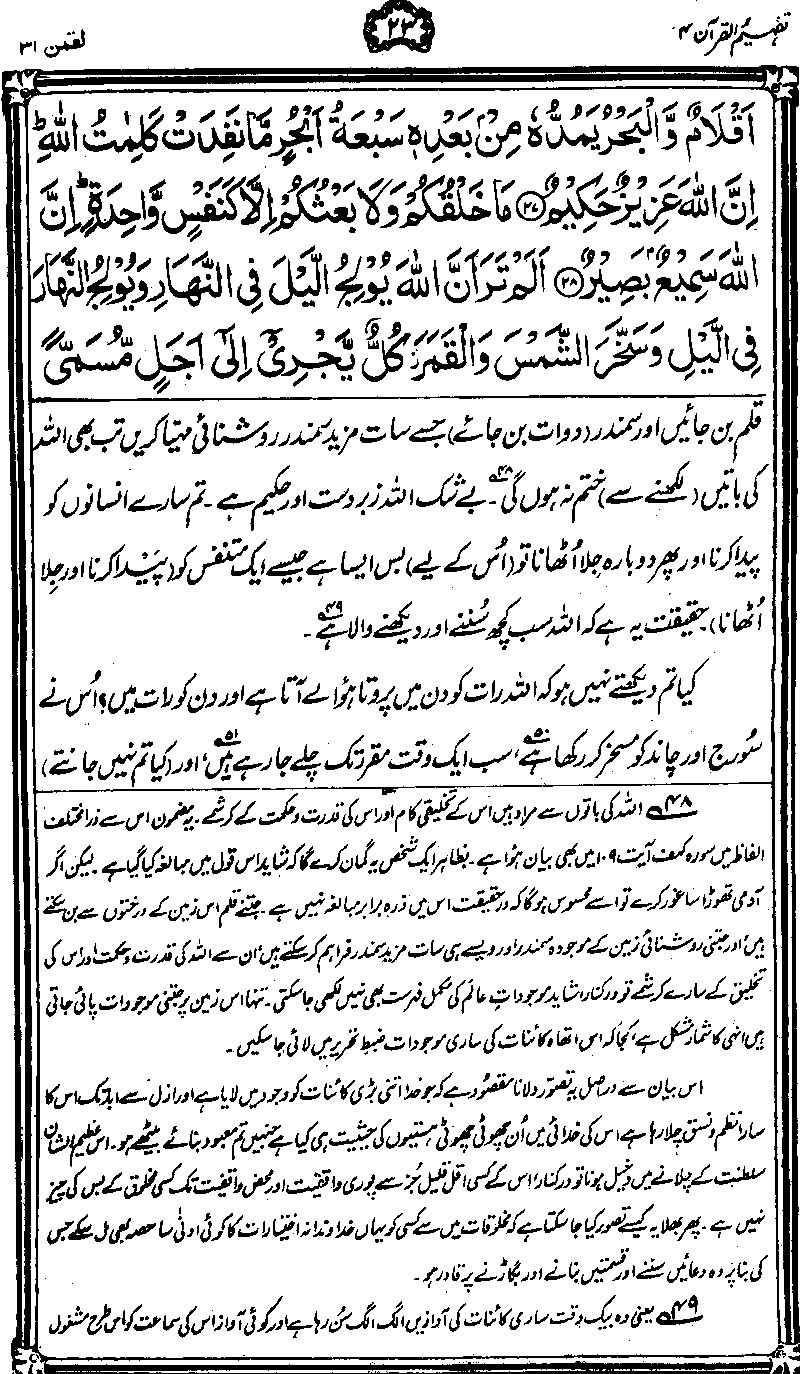 تفہیم القرآن ۴
۲۳
لقمٰن ۳۱
اَقْلَامٌ وَّالْبَحْرُ يَمُدُّهٗ مِنْۢ بَعْدِهٖ سَبْعَةُ اَبْحُرٍ مَّا نَفِدَتْ كَلِمٰتُ اللّٰهِ ؕ
اِنَّ اللّٰهَ عَزِيْزٌ حَكِيْمٌ ﴿۲۷﴾ مَا خَلْقُكُمْ وَلَا بَعْثُكُمْ اِلَّا كَنَفْسٍ وَّاحِدَةٍ ؕ اِنَّ
اللّٰهَ سَمِيْعٌۢ بَصِيْرٌ ﴿۲۸﴾ اَلَمْ تَرَ اَنَّ اللّٰهَ يُوْلِجُ الَّيْلَ فِى النَّهَارِ وَيُوْلِجُ النَّهَارَ
فِى الَّيْلِ وَسَخَّرَ الشَّمْسَ وَالْقَمَرَ ۫ كُلٌّ يَّجْرِىْۤ اِلٰٓى اَجَلٍ مُّسَمًّى
قلم بن جائیں اور سمندر (دوات بن جائے) جسے سات مزید سمندر روشنائی مہیا کریں تب بھی اللہ
کی باتیں (لکھنے سے) ختم نہ ہوں گی۴۸۔ بے شک اللہ زبردست اور حکیم ہے۔ تم سارے انسانوں کو
پیدا کرنا اور پھر دوبارہ جِلا اُٹھانا تو (اُس کے لیے) بس ایسا ہے جیسے ایک متنفس کو (پیدا کرنا اور جِلا
اُٹھانا)۔ حقیقت یہ ہے کہ اللہ سب کچھ سُننے اور دیکھنے والا ہے۴۹۔
کیا تم دیکھتے نہیں ہو کہ اللہ رات کو دن میں پروتا ہؤا لے آتا ہے اور دن کو رات میں؟ اُس نے
سُورج اور چاند کو مسخر کر رکھا ہے۵۰، سب ایک وقت مقرر تک چلے جا رہے ہیں۵۱، اور (کیا تم نہیں جانتے)
۴۸ اللہ کی باتوں سے مراد ہیں اس کے تخلیقی کام اور اس کی قدرت و حکمت کے کرشمے۔ یہ مضمون اس سے ذرا مختلف
الفاظ میں سورہ کہف آیت ۱۰۹ میں بھی بیان ہوا ہے۔ بظاہر ایک شخص یہ گمان کرے گا کہ شاید اس قول میں مبالغہ کیا گیا ہے۔ لیکن اگر
آدمی تھوڑا سا غور کرے تو اسے محسوس ہوگا کہ درحقیقت اس میں ذرہ برابر مبالغہ نہیں ہے۔ جتنے قلم اس زمین کے درختوں سے بن سکتے
ہیں اور جتنی روشنائی زمین کے موجودہ سمندر اور ویسے ہی سات مزید سمندر فراہم کر سکتے ہیں، ان سے اللہ کی قدرت و حکمت اور اس کی
تخلیق کے سارے کرشمے تو درکنار، شاید موجوداتِ عالم کی مکمل فہرست بھی نہیں لکھی جا سکتی۔ تنہا اس زمین پر جتنی موجودات پائی جاتی
ہیں انہی کا شمار مشکل ہے، کجا کہ اس اتھاہ کائنات کی ساری موجودات ضبطِ تحریر میں لائی جا سکیں۔
اس بیان سے دراصل یہ تصوّر دلانا مقصود ہے کہ جو خدا اتنی بڑی کائنات کو وجود میں لایا ہے اور ازل سے ابد تک اس کا
سارا نظم و نسق چلا رہا ہے اس کی خدائی میں اُن چھوٹی چھوٹی ہستیوں کی حیثیت ہی کیا ہے جنہیں تم معبود بنائے بیٹھے ہو۔ اس عظیم الشان
سلطنت کے چلانے میں دخیل ہونا تو درکنار، اس کے کسی اقل قلیل جُز سے پوری واقفیت اور محض واقفیت تک کسی مخلوق کے بس کی چیز
نہیں ہے۔ پھر بھلا یہ کیسے تصور کیا جا سکتا ہے کہ مخلوقات میں سے کسی کو یہاں خداوندانہ اختیارات کا کوئی ادنیٰ سا حصہ بھی مل سکے جس
کی بنا پر وہ دعائیں سننے اور قسمتیں بنانے اور بگاڑنے پر قادر ہو۔
۴۹ یعنی وہ بیک وقت ساری کائنات کی آوازیں الگ الگ سُن رہا ہے اور کوئی آواز اس کی سماعت کو اس طرح مشغول